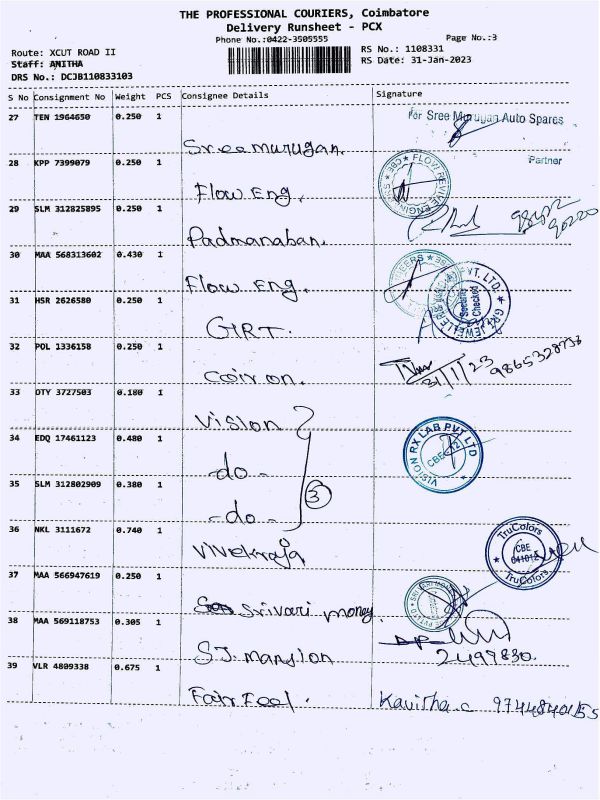 THE PROFESSIONAL COURIERS, Coimbatore
Delivery Runsheet - PCX
Phone No.:0422-3505555
Page No.:3
Route: XCUT ROAD II
RS No.: 1108331
Staff: ANITHA
RS Date: 31-Jan-2023
DRS No.: DCJB110833103
S No Consignment No Weight PCS Consignee Details Signature
27 TEN 1964650 0.250 1
For Sree Murugan Auto Spares
Sree Murugan.
Partner
28 KPP 7399079 0.250 1
FLOW REVIVE ENGINEERS CBE
Flow Eng.
29 SLM 312825895 0.250 1
98422
90220
Padmanaban.
30 MAA 568313602 0.430 1
Flow Eng.
31 HSR 2626580 0.250 1
GRT JEWELLERS PVT. LTD.
Security
Checked
GRT.
32 POL 1336158 0.250 1
31/1/23
Coiron.
33 OTY 3727503 0.180 1
Vision
34 EDQ 17461123 0.480 1
VISION RX LAB PVT LTD
CBE-12
-do-
35 SLM 312802909 0.380 1
3
-do-
36 NKL 3111672 0.740 1
TruColors
CBE
641012
TruColors
Vivekraja
37 MAA 566947619 0.250 1
Srivari money.
38 MAA 569118753 0.305 1
2499830.
S.J. mansion
39 VLR 4809338 0.675 1
Fair Feel.
Kavitha.c